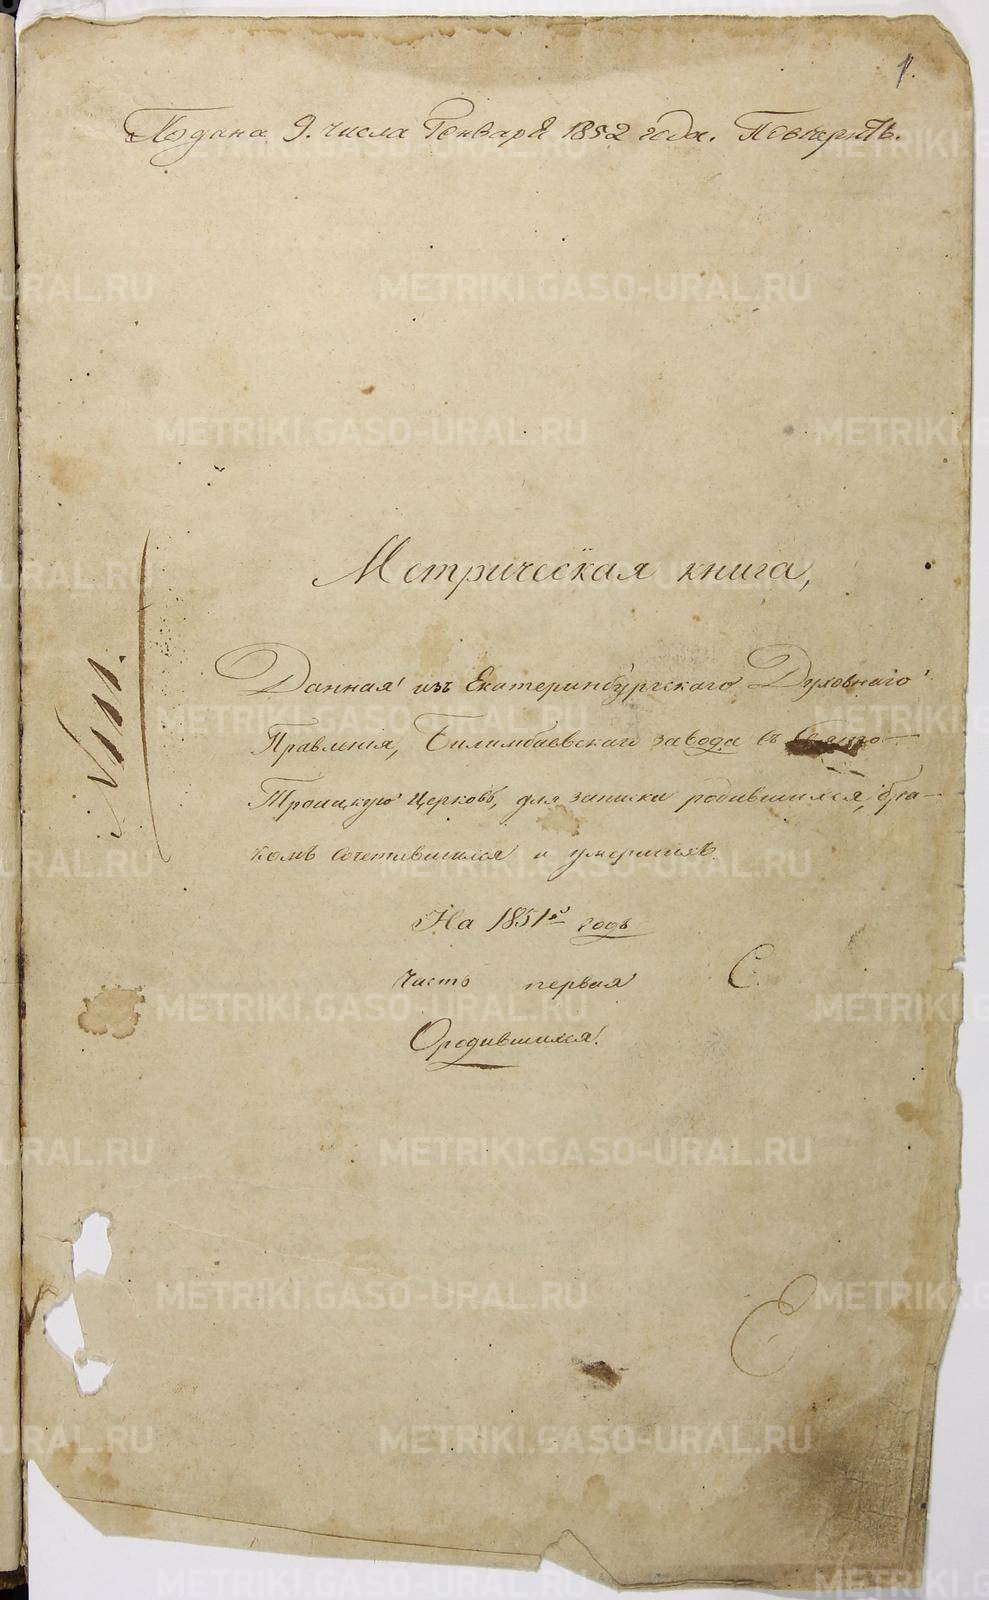 1.
Подана 9. числа Генваря 1852 года.
Метрическая книга,
Данная изъ Екатеринбургскаго Духовнаго
Правленія, Билимбаевскаго завода въ Свято-
Троицкую Церковь, для записки родившихся, бра-
комъ сочетавшихся и умершихъ.
На 1851й годъ
Часть первая
О родившихся.
METRIKI.GASO-URAL.RU